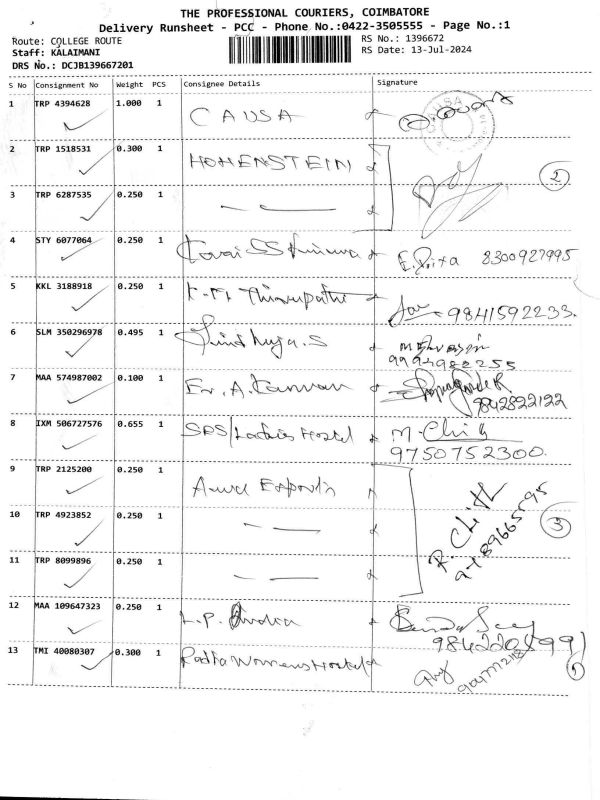 THE PROFESSIONAL COURIERS, COIMBATORE
Delivery Runsheet - PCC - Phone No.:0422-3505555 - Page No.:1
Route: COLLEGE ROUTE RS No.: 1396672
Staff: KALAIMANI RS Date: 13-Jul-2024
DRS No.: DCJB139667201
S No Consignment No Weight PCS Consignee Details Signature
1 TRP 4394628 1.000 1 CAUSA
2 TRP 1518531 0.300 1 HOHENSTEIN 2
3 TRP 6287535 0.250 1 — —
4 STY 6077064 0.250 1 Kovai SS 8300927995
5 KKL 3188918 0.250 1 K.M Thirupathi 9841592233.
6 SLM 350296978 0.495 1 Sindhuja.S
7 MAA 574987002 0.100 1 Er. A. Kannan 9842822122
8 IXM 506727576 0.655 1 SRS/Ladies Hostel M.
9750752300.
9 TRP 2125200 0.250 1 Exports
10 TRP 4923852 0.250 1 — — 3
11 TRP 8099896 0.250 1 — —
12 MAA 109647323 0.250 1 L.P.
13 TMI 40080307 0.300 1 Radha Womens Hostel